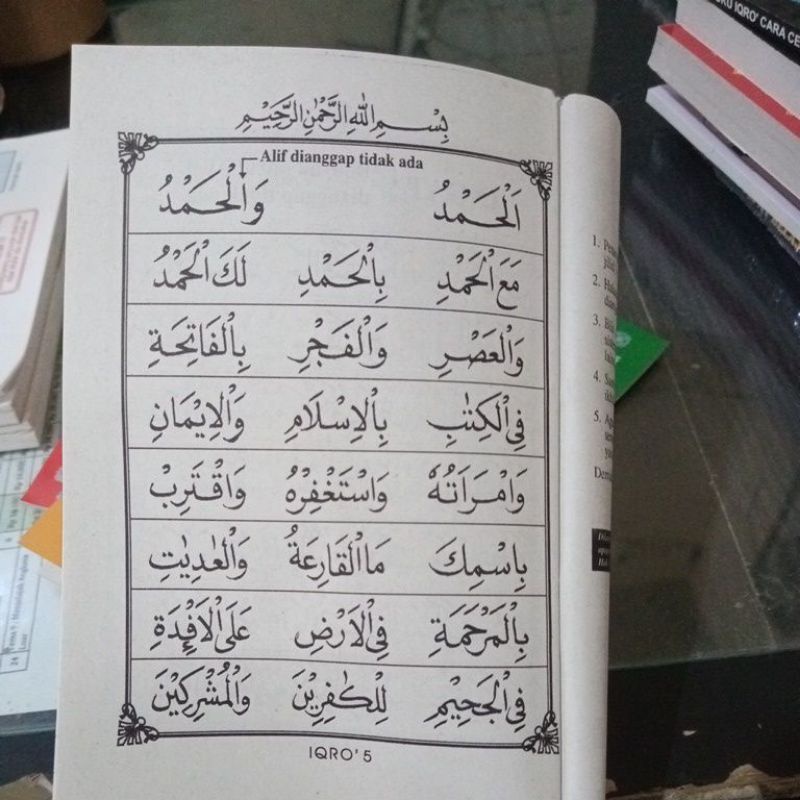 بِسْمِ اللهِ الرَّحْمٰنِ الرَّحِيْمِ
Alif dianggap tidak ada
اَلْحَمْدُ وَالْحَمْدُ
مَعَ الْحَمْدِ بِالْحَمْدِ لَكَ الْحَمْدُ
وَالْعَصْرِ وَالْفَجْرِ بِالْفَاتِحَةِ
فِى الْكِتٰبِ بِالْاِسْلَامِ وَالْاِيْمَانِ
وَامْرَاَتُهٗ وَاسْتَغْفِرْهُ وَاقْتَرِبْ
بِاسْمِكَ مَاالْقَارِعَةُ وَالْعٰدِيٰتِ
بِالْمَرْحَمَةِ فِى الْاَرْضِ عَلَى الْاَفْـِٕدَةِ
فِى الْجَحِيْمِ لِلْكٰفِرِيْنَ وَالْمُشْرِكِيْنَ
IQRO' 5
IQRO' CARA
1.
2.
3.
4.
5.